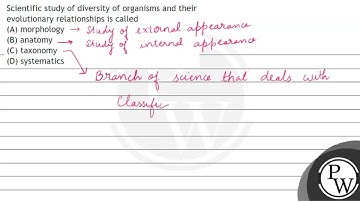 Scientific study of diversity of organisms and their
evolutionary relationships is called
(A) morphology → Study of external appearance
(B) anatomy → Study of internal appearance
(C) taxonomy
(D) systematics
Branch of science that deals with
Classific
PW